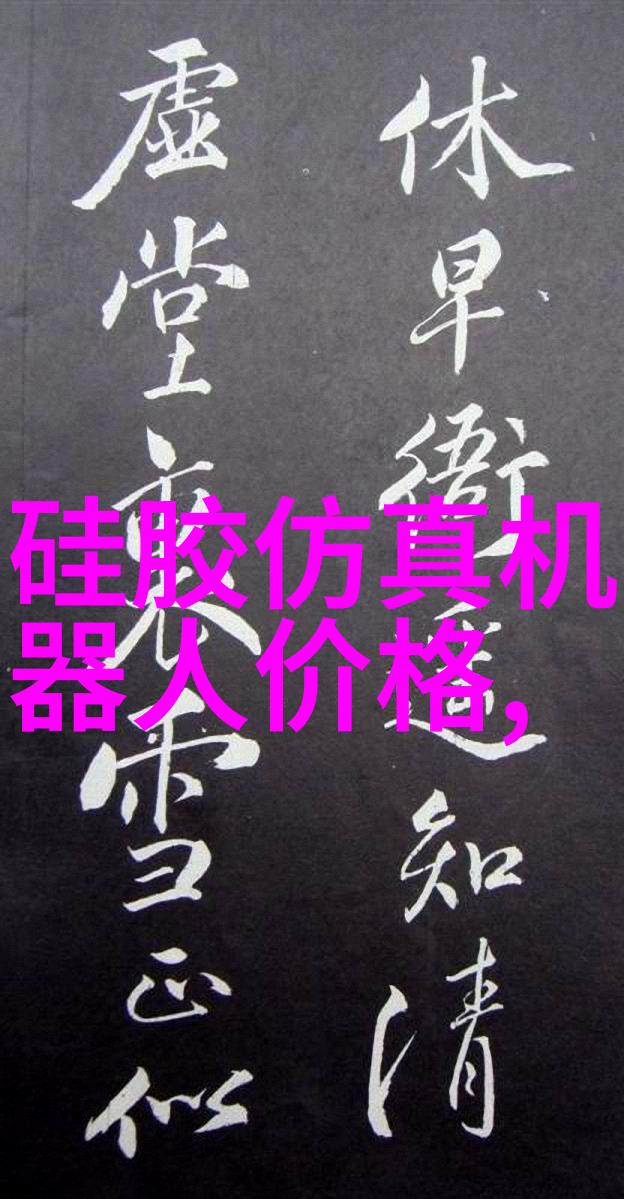 休早衙遥知清
虚堂裏雪正似
硅胶仿真机
器人价格,